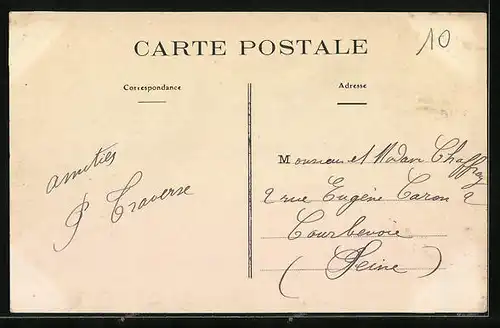 10
CARTE POSTALE
Correspondance
Adresse
amitiés
P Traverse
Monsieur et Madame Chaffray
2 rue Eugène Caron 2
Courbevoie
(Seine)